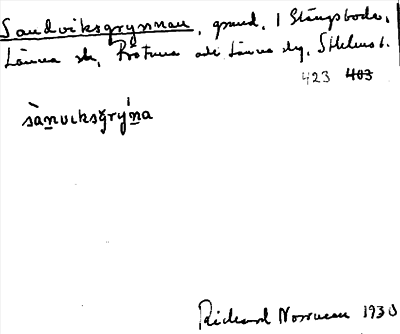 Sandviksgrynnan, grund, 1 Stångsboda,
Länna sk, Frötuna och Länna slg, Sthlms l.
423 403
sànviksgrý̀na
Rickard Norrman 1930